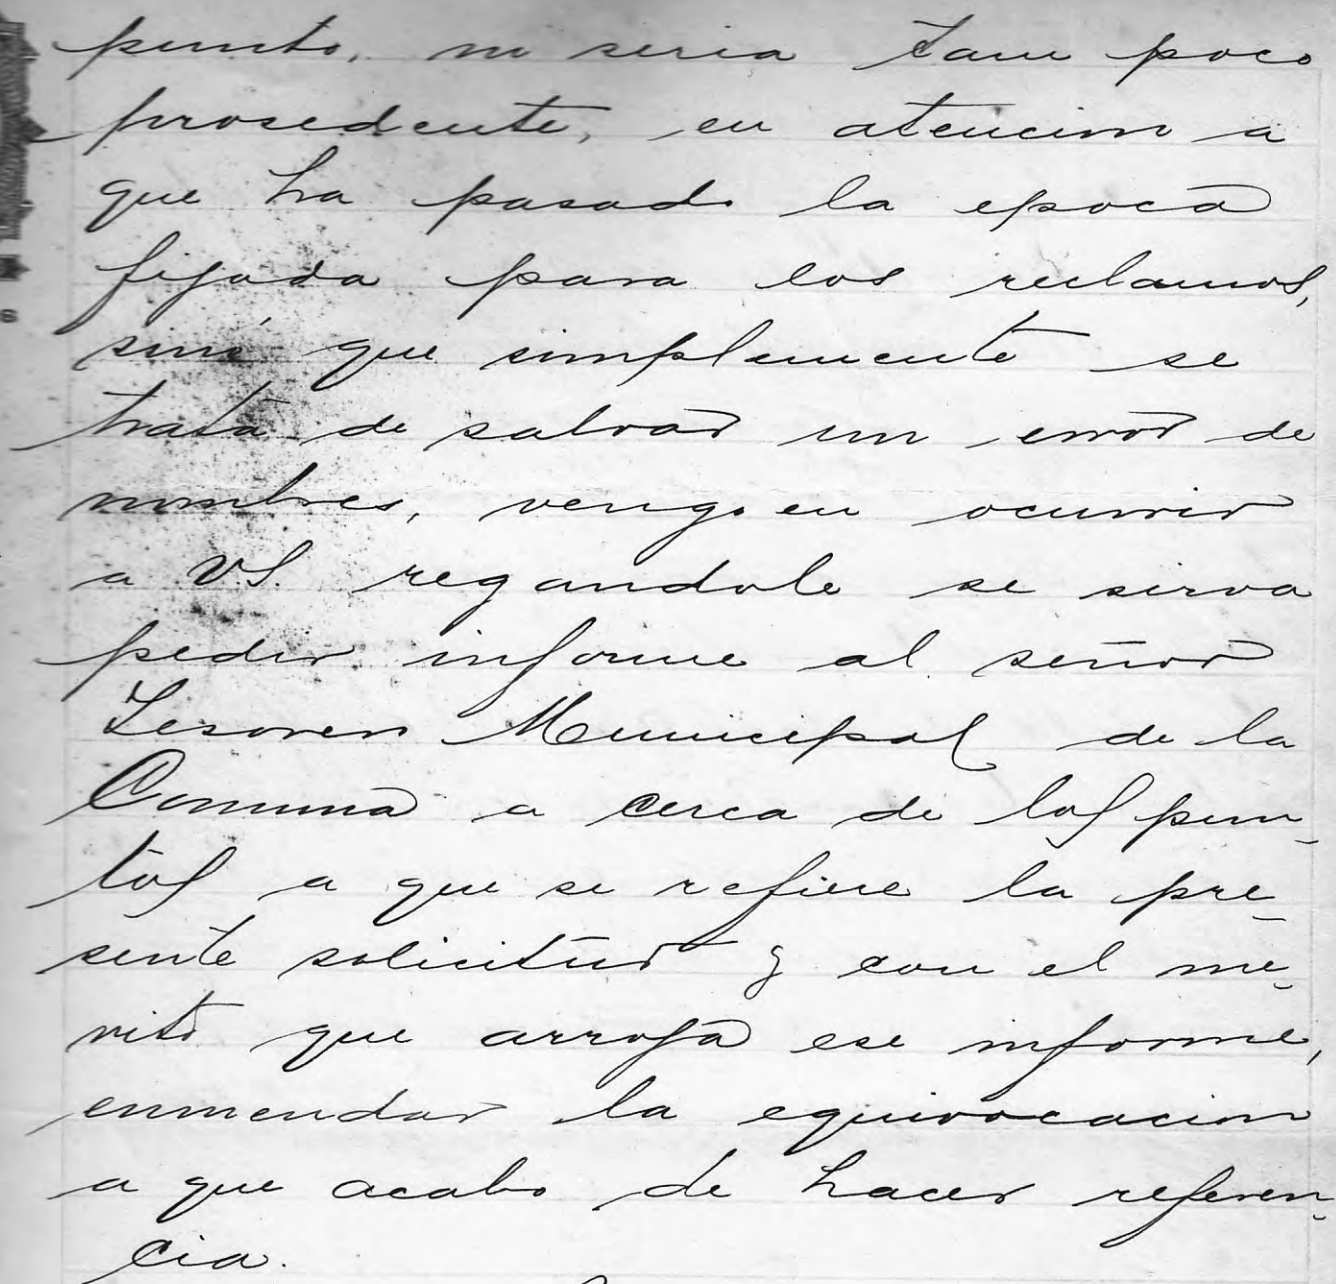 punto, ni seria tam poco
prosedente, en atencion a
que ha pasado la epoca
fijada para los reclamos,
sinó que simplemente se
trata de salvar un error de
nombres, vengo en ocurrir
a VS. regandole se sirva
pedir informe al señor
Tesorero Municipal de la
Comuna a cerca de los pun-
tos a que se refiere la pre-
sente solicitud y con el me-
rito que arroja ese informe,
enmendar la equivocacion
a que acabo de hacer referen-
cia.